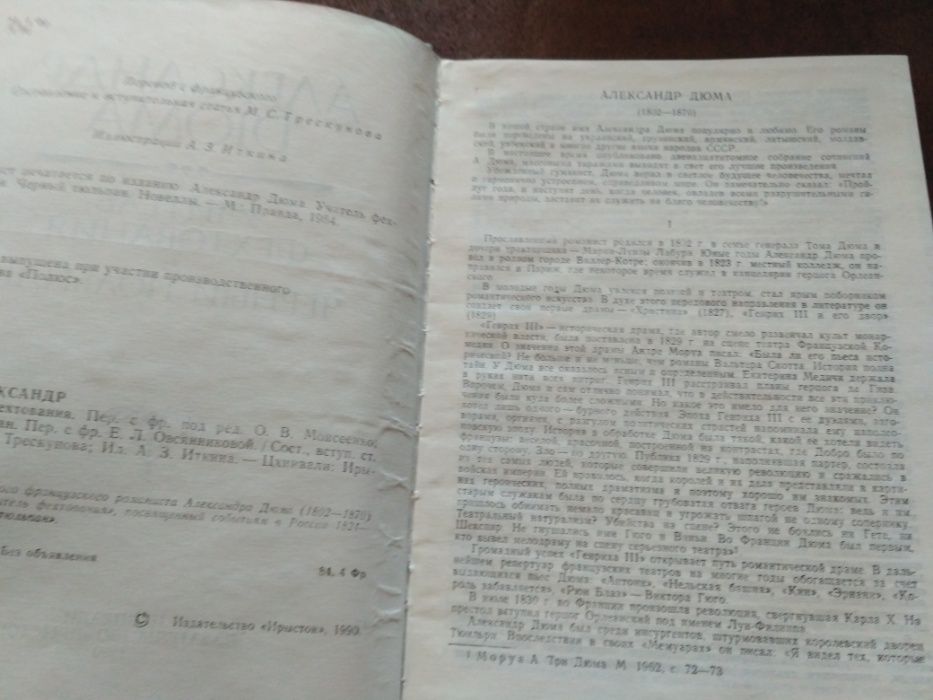 Перевод с французского
Составление и вступительная статья М. С. Трескунова
Иллюстрации А. З. Иткина
печатается по изданию: Александр Дюма Учитель фех-
Черный тюльпан. Новеллы. — М.: Правда, 1984.
выпущена при участии производственного
«Полюс».
КСАНДР
ехтования. Пер. с фр. под ред. О. В. Моисеенко;
ан. Пер. с фр. Е. Л. Овсянниковой. / Сост., вступ. ст.
Трескунова; Ил. А. З. Иткина. — Цхинвали: Иры-
ого французского романиста Александра Дюма (1802—1870)
тель фехтования», посвященный событиям в России 1824—
тюльпан».
Без объявления
84. 4 Фр
© Издательство «Ирыстон», 1990.
АЛЕКСАНДР ДЮМА
(1802—1870)
В нашей стране имя Александра Дюма популярно и любимо. Его романы
были переведены на украинский, грузинский, армянский, латышский, молдав-
ский, узбекский и многие другие языки народов СССР.
В настоящее время опубликовано двенадцатитомное собрание сочинений
А. Дюма, массовыми тиражами выходят в свет его лучшие произведения.
Убежденный гуманист, Дюма верил в светлое будущее человечества, мечтал
о гармонично устроенном, справедливом мире. Он замечательно сказал: «Прой-
дут года, и наступит день, когда человек, овладев всеми разрушительными си-
лами природы, заставит их служить на благо человечеству!»
1
Прославленный романист родился в 1802 г. в семье генерала Тома Дюма и
дочери трактирщика — Марии-Луизы Лабуре. Юные годы Александр Дюма про-
вел в родном городе Виллер-Котре; окончив в 1823 г. местный колледж, он на-
правился в Париж, где некоторое время служил в канцелярии герцога Орлеан-
ского.
В молодые годы Дюма увлекся поэзией и театром, стал ярым поборником
романтического искусства. В духе этого передового направления в литературе он
создает свои первые драмы — «Христина» (1827), «Генрих III и его двор»
(1829)
«Генрих III» — историческая драма, где автор смело развенчал культ монар-
хической власти, была поставлена в 1829 г. на сцене театра Французской Ко-
медии. О значении этой драмы Андре Моруа писал: «Была ли его пьеса исто-
рической? Не больше и не меньше, чем романы Вальтера Скотта. История полна
тайн. У Дюма все оказалось ясным и определенным. Екатерина Медичи держала
в руках нити всех интриг. Генрих III расстраивал планы герцога де Гиза.
Впрочем, Дюма и сам отлично понимал, что в действительности все эти приклю-
чения были куда более сложными. Но какое это имело для него значение? Он
хотел лишь одного — бурного действия. Эпоха Генриха III с ее дуэлями, заго-
ворами, оргиями, с разгулом политических страстей напоминала ему наполео-
новскую эпоху. История в обработке Дюма была такой, какой ее хотели видеть
французы: веселой, красочной, построенной на контрастах, где Добро было по
одну сторону, Зло — по другую. Публика 1829 г., наполнявшая партер, состояла
из тех самых людей, которые совершили великую революцию и сражались в
войсках империи. Ей нравилось, когда королей и их дела представляли в карти-
нах героических, полных драматизма и поэтому хорошо им знакомых. Этим
старым служакам была по сердцу грубоватая отвага героев Дюма: ведь и им
пришлось обнимать немало красавиц и угрожать шпагой не одному сопернику.
Театральный натурализм? Убийства на сцене? Этого не боялись ни Гете, ни
Шекспир. Не гнушались ими Гюго и Виньи. Во Франции Дюма был первым,
кто вывел мелодраму на сцену серьезного театра»¹
Громадный успех «Генриха III» открывает путь романтической драме. В даль-
нейшем репертуар французских театров на многие годы обогащается за счет
выдающихся пьес Дюма: «Антони», «Нельская башня», «Кин», «Эрнани», «Ко-
роль забавляется», «Рюи Блаз» — Виктора Гюго.
В июле 1830 г. во Франции произошла революция, свергнувшая Карла X. На
престол вступил герцог Орлеанский под именем Луи-Филиппа.
Александр Дюма был среди инсургентов, штурмовавших королевский дворец
Тюильри. Впоследствии в своих «Мемуарах» он писал: «Я видел тех, которые
¹ Моруа А. Три Дюма. М. 1962, с. 72—73